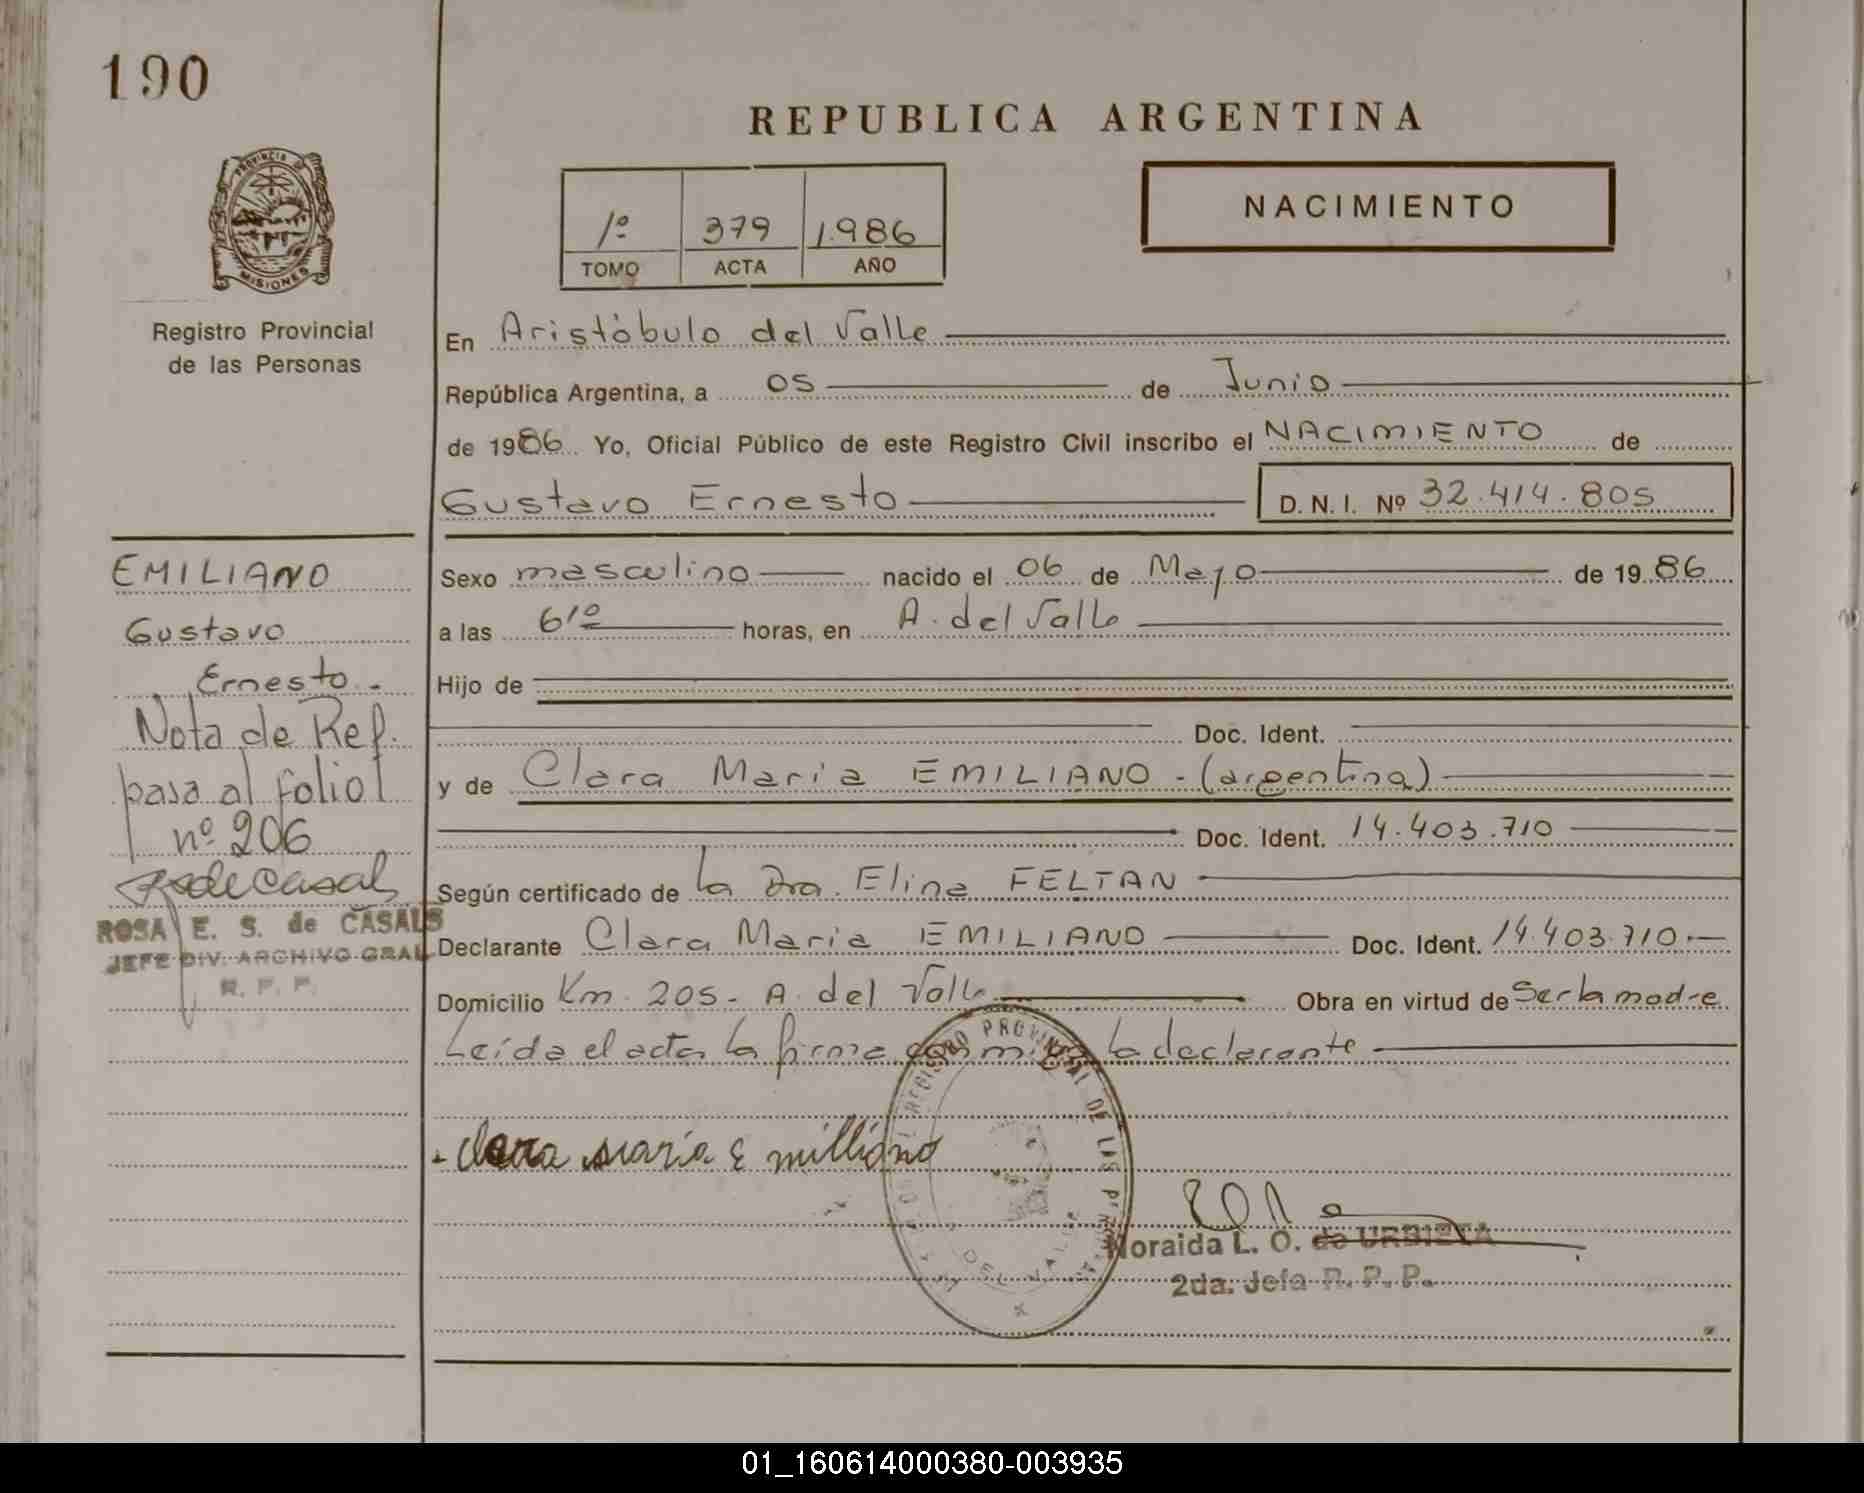 190
REPUBLICA ARGENTINA
PROVINCIA DE
MISIONES
Registro Provincial
de las Personas
1º 379 1.986
TOMO ACTA AÑO
NACIMIENTO
En Aristóbulo del Valle
República Argentina, a 05 de Junio
de 1986 Yo, Oficial Público de este Registro Civil inscribo el NACIMIENTO de
Gustavo Ernesto D. N. I. Nº 32.414.805
EMILIANO
Gustavo
Ernesto.-
Nota de Ref.
pasa al folio
nº 206
ROSA E. S. de CASALS
JEFE DIV. ARCHIVO GRAL
R. P. P.
Sexo masculino nacido el 06 de Mayo de 1986
a las 6 horas, en A. del Valle
Hijo de
Doc. Ident.
y de Clara Maria EMILIANO - (argentina)
Doc. Ident. 14.403.710
Según certificado de la Dra. Elina FELTAN
Declarante Clara Maria EMILIANO Doc. Ident. 14.403.710.-
Domicilio Km. 205- A. del Valle Obra en virtud de Ser la madre
Leída el acta la firma conmigo la declarante
- Clara maria Emilliano
REGISTRO PROVINCIAL DE LAS
DEL VALLE
Noraida L. O. de URBIETA
2da. Jefa R. P. P.
01_160614000380-003935